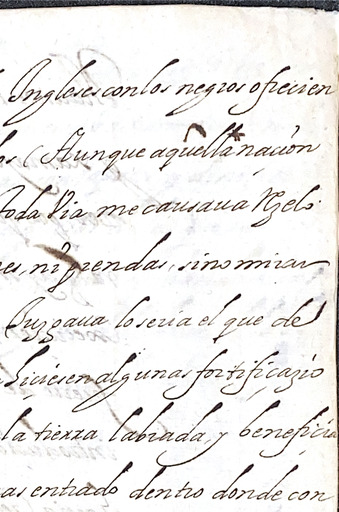 Ingleses con los negros ofrecien
los (Aunque aquella nación
toda Via me causaua Rezelo.
es, ni prendas, sino mirar
Juzgaua lo seria el que de
hiciesen algunas fortificazio
la tierra labrada, y beneficia
as entrado dentro donde con